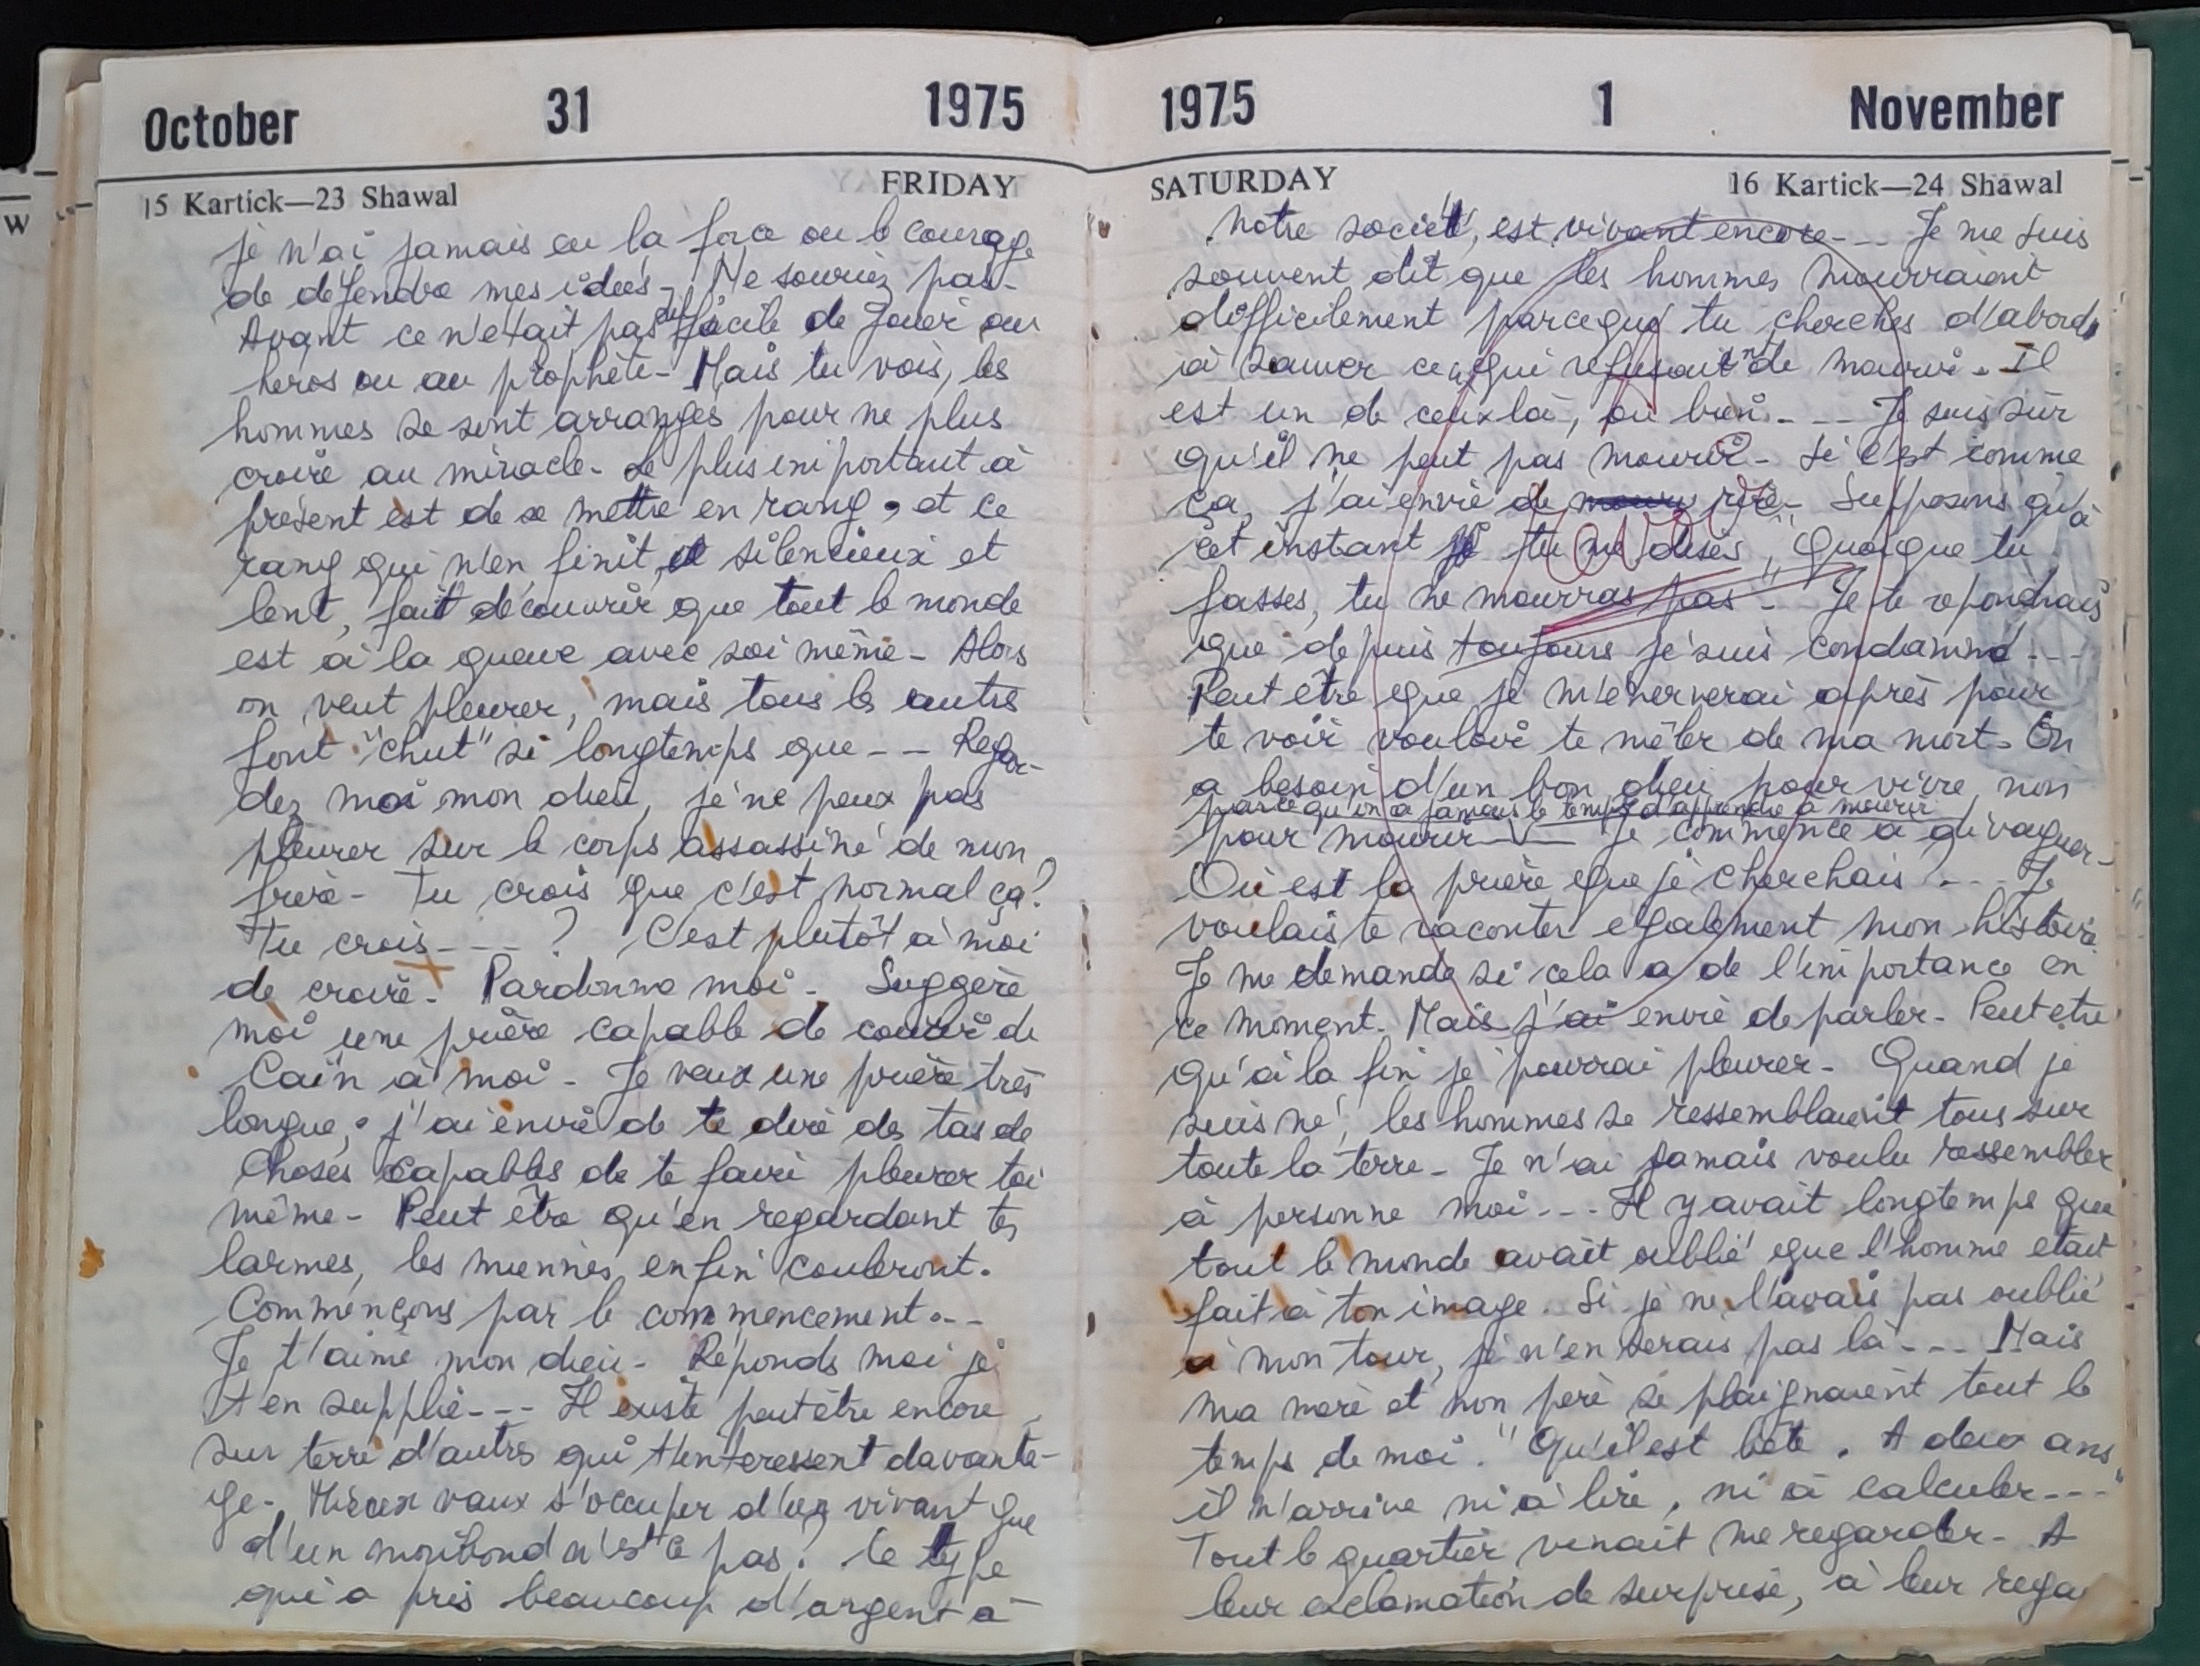 October 31 1975
15 Kartick—23 Shawal FRIDAY
je n'ai jamais eu la force ou le courage
de défendre mes idées - Ne souriez pas -
Avant ce n'etait pas facile de jouer au
heros ou au prophète - Mais tu vois, les
hommes se sont arrangés pour ne plus
croire au miracle - Le plus important à
présent est de se mettre en rang, et ce
rang qui n'en finit, silencieux et
lent, fait découvrir que tout le monde
est à la queue avec soi même - Alors
on veut pleurer, mais tous les autres
font "chut" si longtemps que - - Regar-
dez moi mon dieu, je ne peux pas
pleurer sur le corps assassiné de mon
frère - Tu crois que c'est normal ça?
Tu crois - - - ? C'est plutôt à moi
de croire - Pardonne moi - Suggère
moi une prière capable de couvrir de
Caïn à moi - Je veux une prière très
longue, j'ai envie de te dire des tas de
choses capables de te faire pleurer toi
même - Peut être qu'en regardant tes
larmes, les miennes enfin couleront.
Commençons par le commencement - -
Je t'aime mon dieu - Réponds moi je
t'en supplie - - - Il existe peut être encore
sur terre d'autres qui t'interessent davanta-
ge - Mieux vaux s'occuper d'un vivant que
d'un moribond n'est ce pas? Le type
qui a pris beaucoup d'argent à
1975 1 November
SATURDAY 16 Kartick—24 Shawal
Notre société, est vivant encore - - Je me suis
souvent dit que les hommes mourraient
difficilement parceque tu cherches d'abord
à sauver ce qui refusait de mourir - Il
est un de ceux là, ou bien - - - Je suis sûr
qu'il ne peut pas mourir - Si c'est comme
ça, j'ai envie de rire - Supposons qu'à
cet instant tu me dises, "Quoique tu
fasses, tu ne mourras pas" - Je te repondrais
que depuis toujours je suis condamné - - -
Peut être que je m'enerverai après pour
te voir vouloir te mêler de ma mort. On
a besoin d'un bon dieu pour vivre, non
parce qu'on a jamais le temps d'apprendre à mourir
pour mourir - Je commence à divaguer -
Où est la prière que je cherchais? - - - Je
voulais te raconter egalement mon histoire
Je me demande si cela a de l'importance en
ce moment. Mais j'ai envie de parler - Peut etre
qu'à la fin je pourrai pleurer - Quand je
suis né, les hommes se ressemblaient tous sur
toute la terre - Je n'ai jamais voulu ressembler
à personne moi - - - Il y avait longtemps que
tout le monde avait oublié que l'homme etait
fait à ton image. Si je ne l'avais pas oublié
à mon tour, je n'en serais pas là - - - Mais
ma mère et mon père se plaignaient tout le
temps de moi. "Qu'il est bête. A deux ans
il n'arrive ni à lire, ni à calculer - - -"
Tout le quartier venait me regarder - A
leur exclamation de surprise, à leur rega